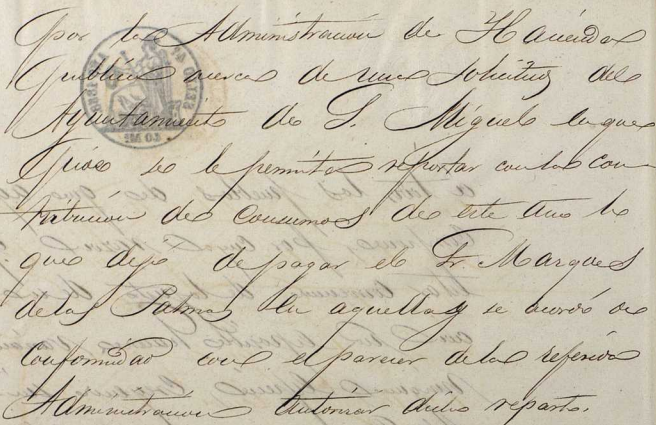 por la Administración de Hacienda
publica acerca de una solicitud del
Ayuntamiento de S. Miguel en que
pide se le permita repartar con la con
tribución de consumos de este año lo
que dejo de pagar el Sr. Marques
de las Palmas en aquella y se acordó de
conformidad con el parecer de la referida
Administración autorizar dicho reparto.